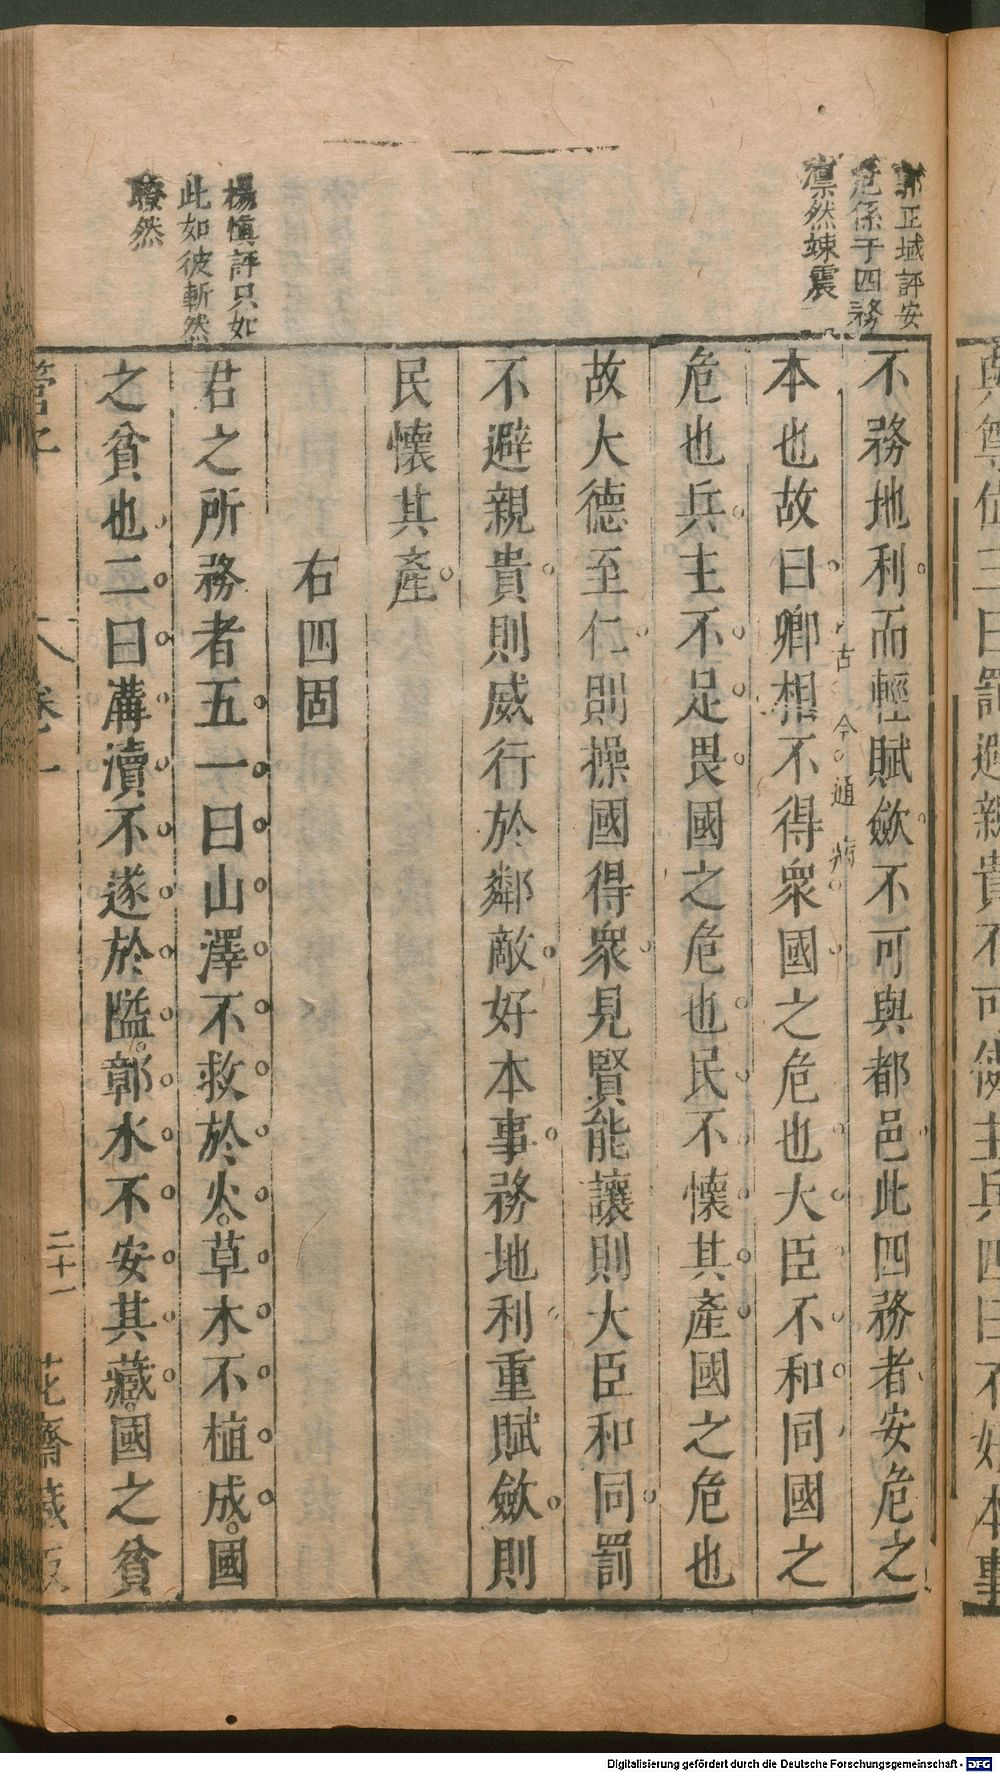 郭正域評安
危係于四務
凛然竦震
不務地利而輕賦斂不可與都邑此四務者安危之
古今通病
本也故曰卿相不得衆國之危也大臣不和同國之
危也兵主不足畏國之危也民不懷其產國之危也
故大德至仁則操國得衆見賢能讓則大臣和同罰
不避親貴則威行於鄰敵好本事務地利重賦斂則
民懷其產
右四固
楊慎評只如
此如彼斬然
瞭然
君之所務者五一曰山澤不救於火草木不植成國
之貧也二曰溝瀆不遂於隘鄣水不安其藏國之貧
管子
卷一
二十一
花齋藏板
Digitalisierung gefördert durch die Deutsche Forschungsgemeinschaft - DFG